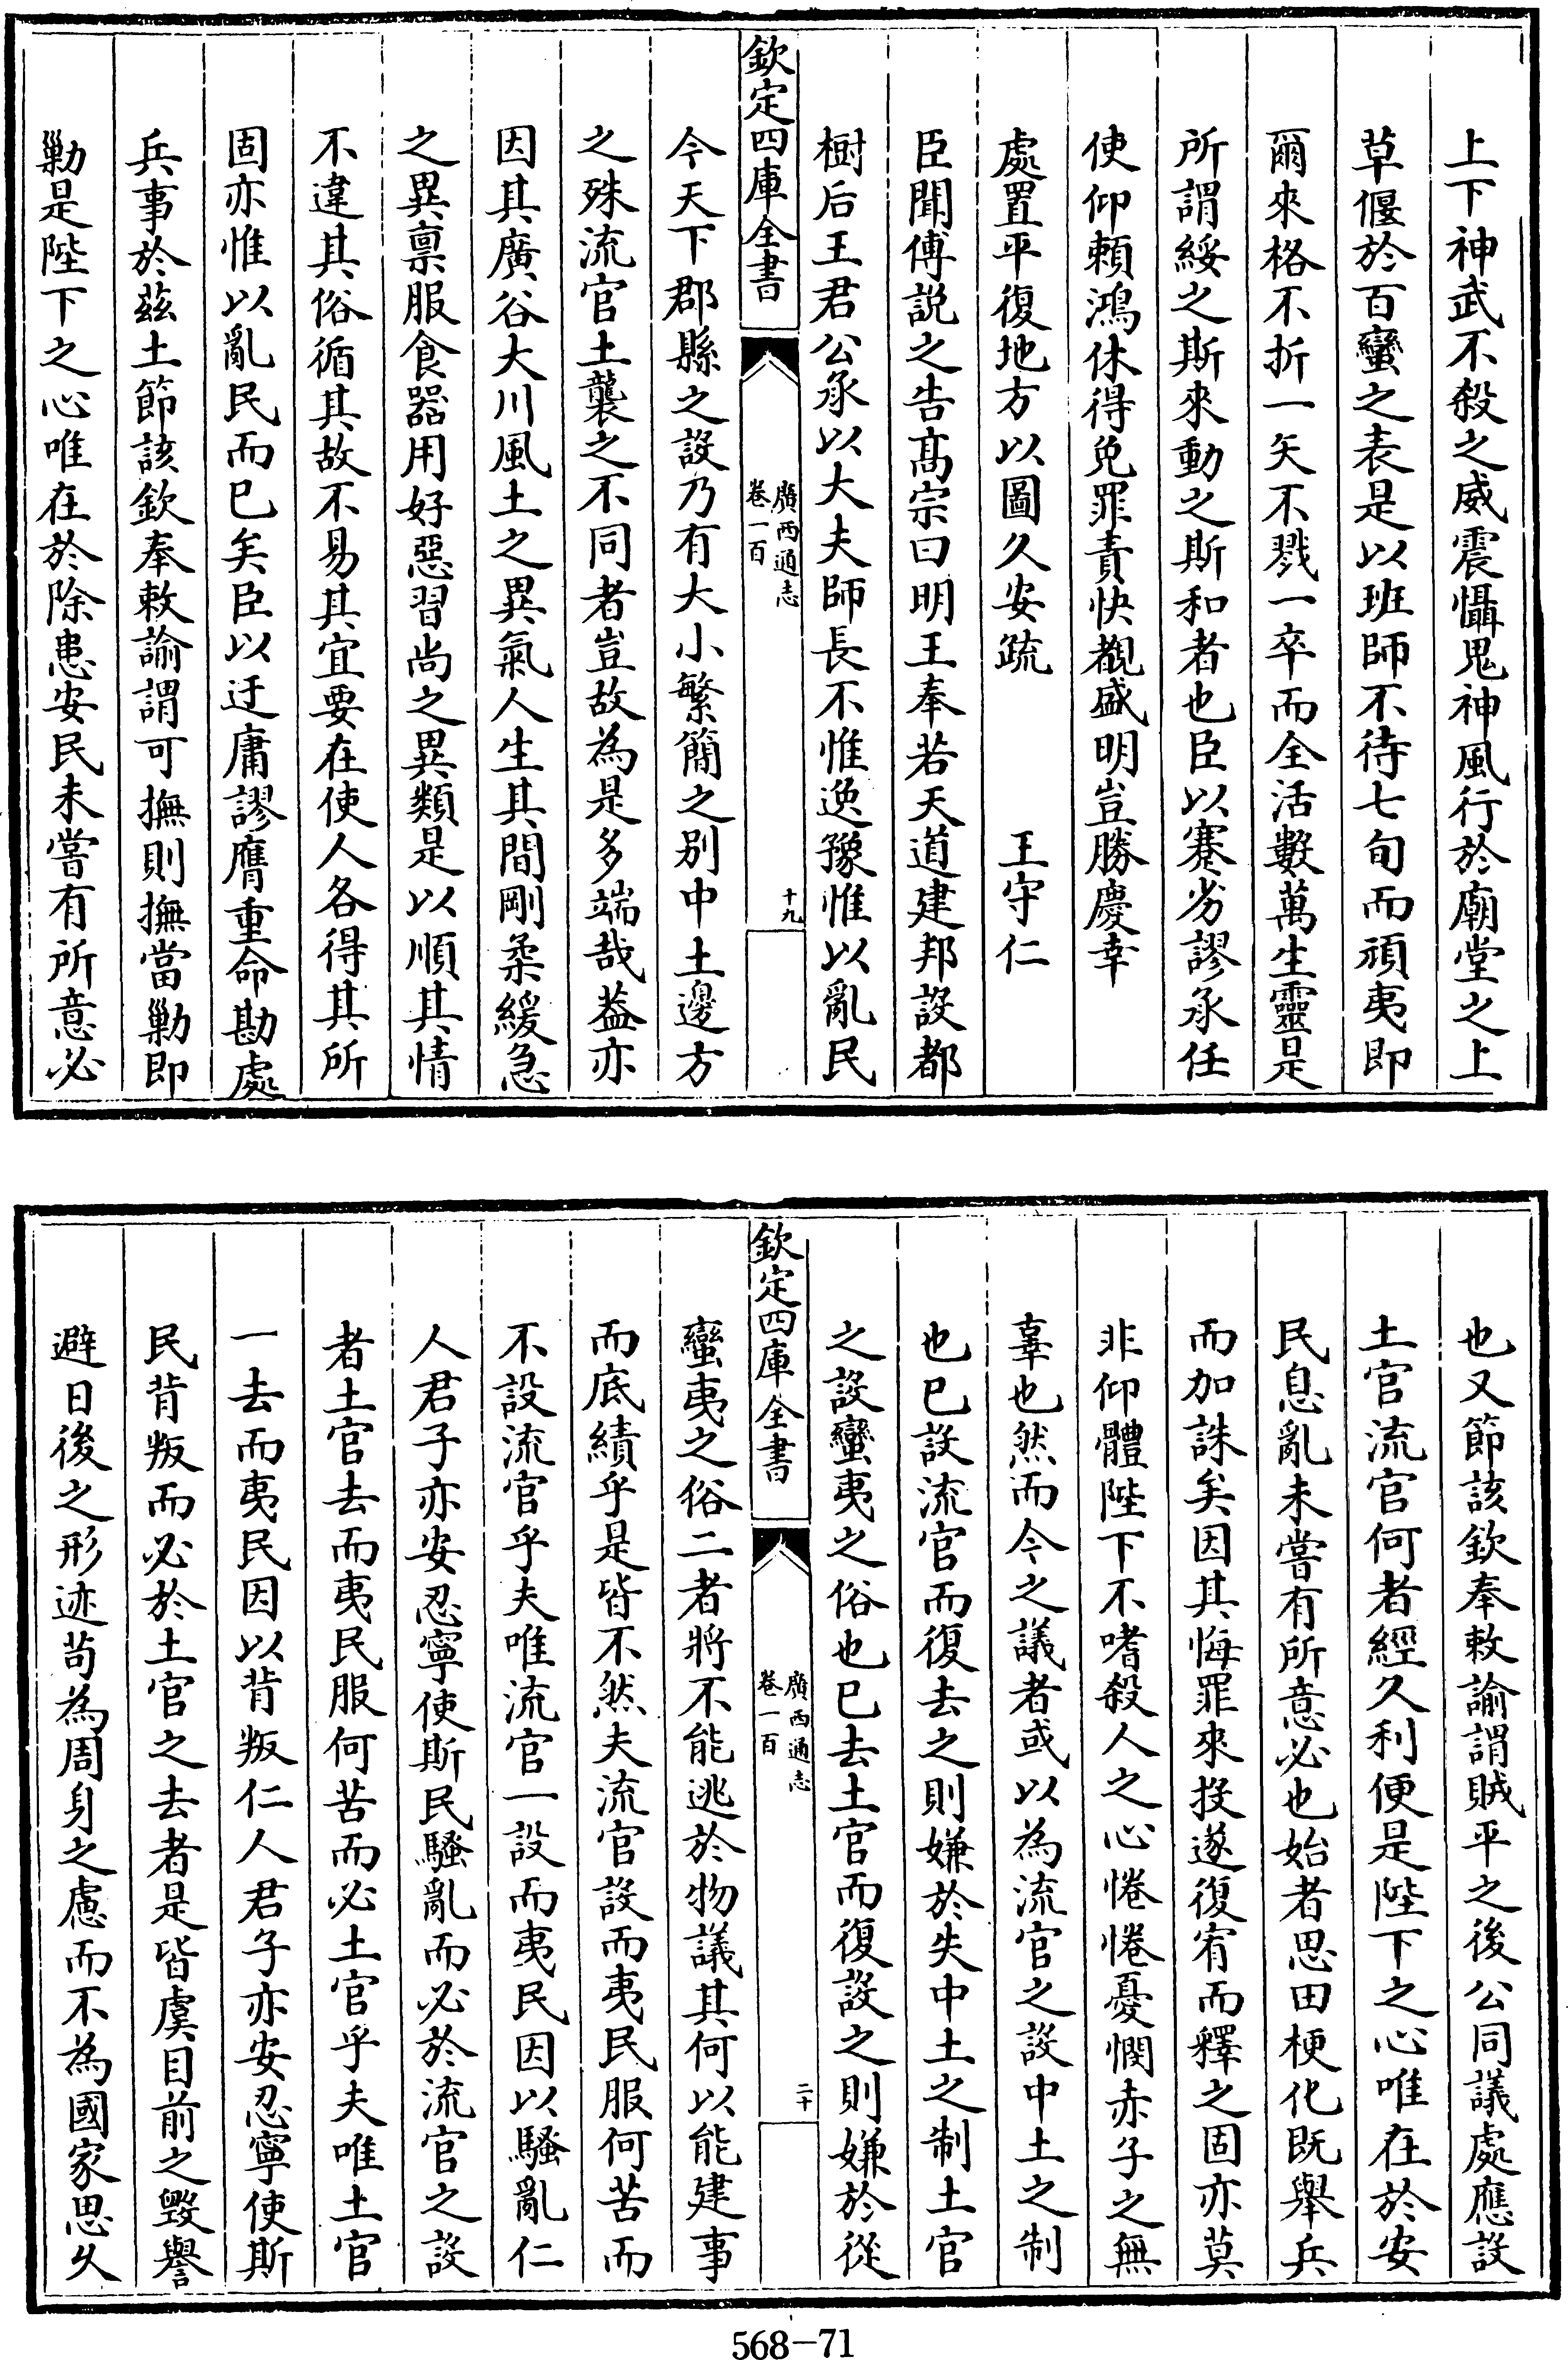 上下神武不殺之威震懾鬼神風行於廟堂之上
草偃於百蠻之表是以班師不待七旬而頑夷即
爾來格不折一矢不戮一卒而全活數萬生靈是
所謂綏之斯來動之斯和者也臣以蹇劣謬承任
使仰賴鴻休得免罪責快覩盛明豈勝慶幸
處置平復地方以圖久安疏　王守仁
臣聞傅説之告髙宗曰明王奉若天道建邦設都
樹后王君公承以大夫師長不惟逸豫惟以亂民
欽定四庫全書
廣西通志
卷一百
十九
今天下郡縣之設乃有大小繁簡之别中土邊方
之殊流官土襲之不同者豈故為是多端哉葢亦
因其廣谷大川風土之異氣人生其間剛柔緩急
之異禀服食器用好惡習尚之異類是以順其情
不違其俗循其故不易其宜要在使人各得其所
固亦惟以亂民而已矣臣以迂庸謬膺重命勘處
兵事於兹土節該欽奉敕諭謂可撫則撫當勦即
勦是陛下之心唯在於除患安民未嘗有所意必
也又節該欽奉敕諭謂賊平之後公同議處應設
土官流官何者經久利便是陛下之心唯在於安
民息亂未嘗有所意必也始者思田梗化既舉兵
而加誅矣因其悔罪來投遂復宥而釋之固亦莫
非仰體陛下不嗜殺人之心惓惓憂憫赤子之無
辜也然而今之議者或以為流官之設中土之制
也已設流官而復去之則嫌於失中土之制土官
之設蠻夷之俗也已去土官而復設之則嫌於從
欽定四庫全書
廣西通志
卷一百
二十
蠻夷之俗二者將不能逃於物議其何以能建事
而底績乎是皆不然夫流官設而夷民服何苦而
不設流官乎夫唯流官一設而夷民因以騷亂仁
人君子亦安忍寧使斯民騷亂而必於流官之設
者土官去而夷民服何苦而必土官乎夫唯土官
一去而夷民因以背叛仁人君子亦安忍寧使斯
民背叛而必於土官之去者是皆虞目前之毀譽
避日後之形迹苟為周身之慮而不為國家思久
568-71